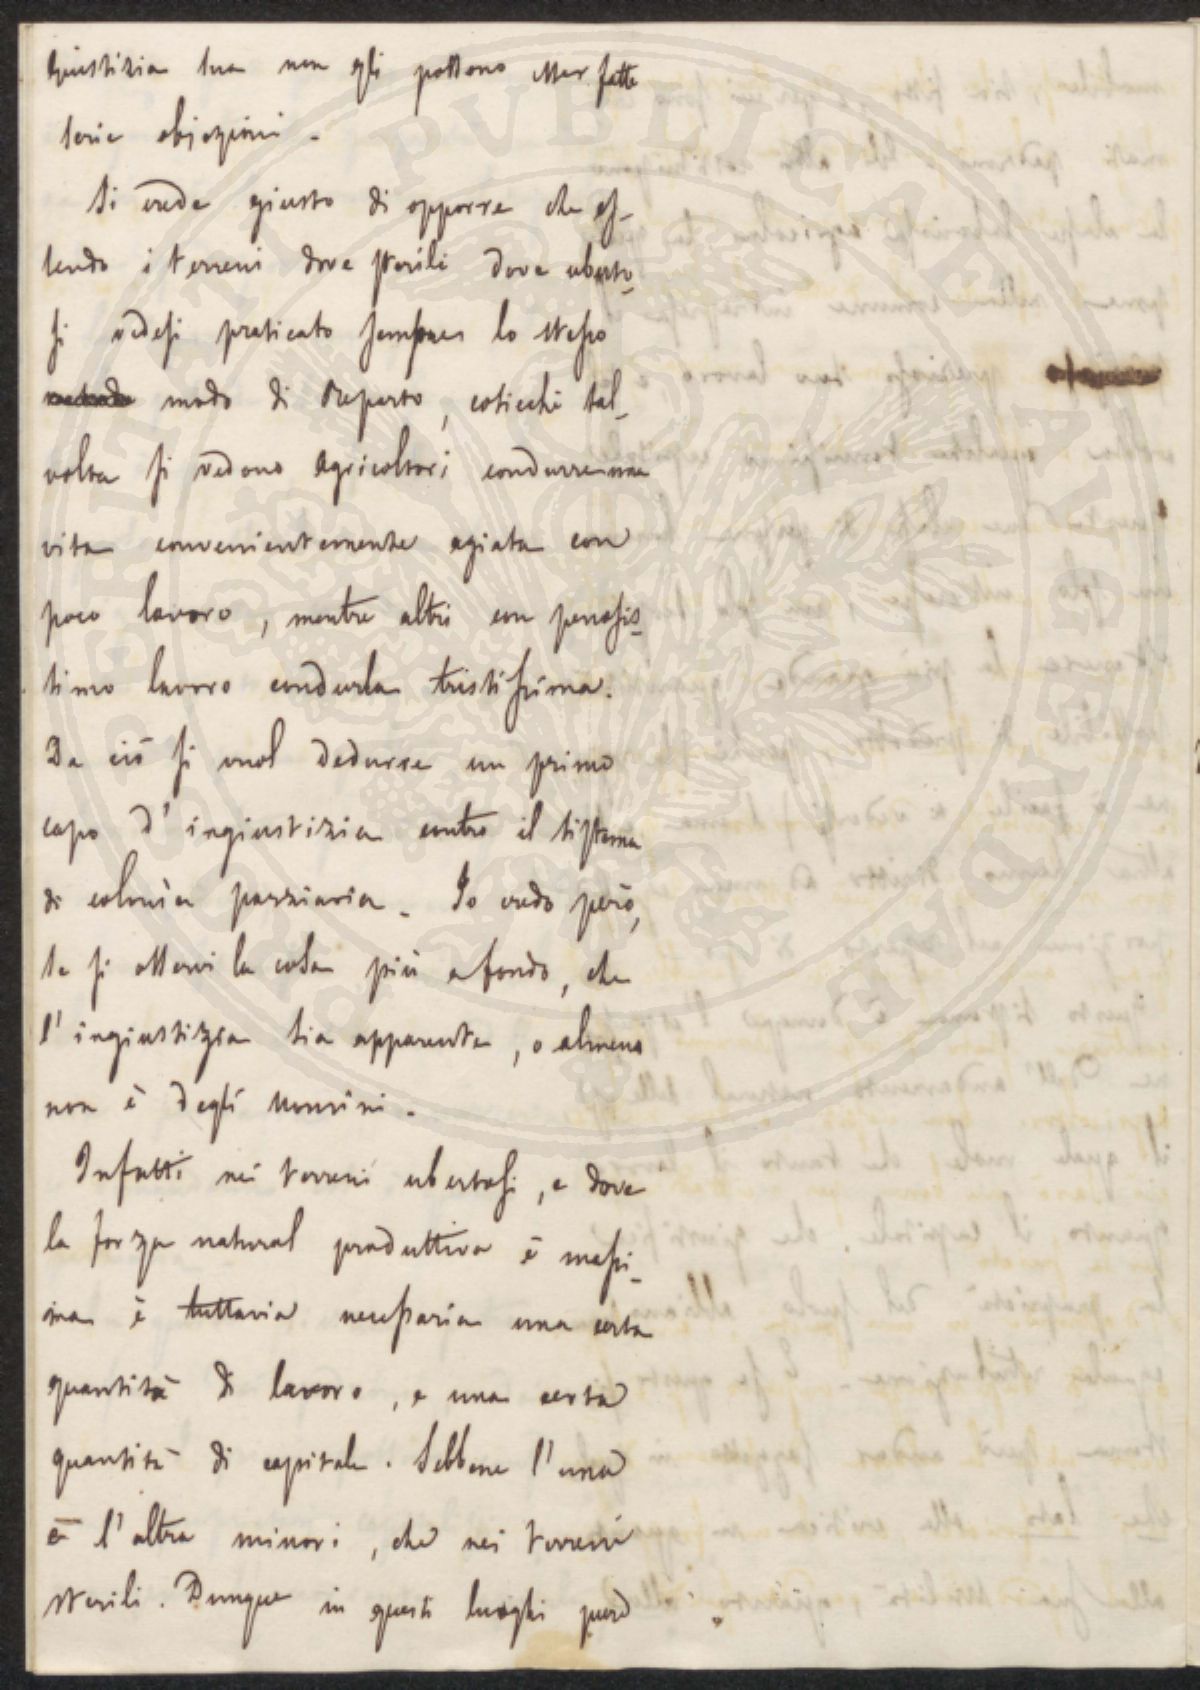 giustizia sua non gli possono esser fatte
serie obiezioni.
Si crede giusto di opporre che es-
sendo i terreni dove sterili dove uberto-
si vedesi praticato sempre lo stesso
metodo modo di reparto, cosicchè tal-
volta si vedono agricoltori condurre una
vita convenientemente agiata con
poco lavoro, mentre altri con penosis-
simo lavoro condurla tristissima.
Da ciò si vuol dedurre un primo
capo d'ingiustizia contro il sistema
di colonia parziaria. Io credo però,
se si osservi la cosa più a fondo, che
l'ingiustizia sia apparente, o almeno
non è degli uomini.
Infatti nei terreni ubertosi, e dove
la forza natural produttiva è massi-
ma è tuttavia necessaria una certa
quantità di lavoro, e una certa
quantità di capitale. Sebbene l'una
e l'altra minori, che nei terreni
sterili. Dunque in questi luoghi però
PUBLICAE